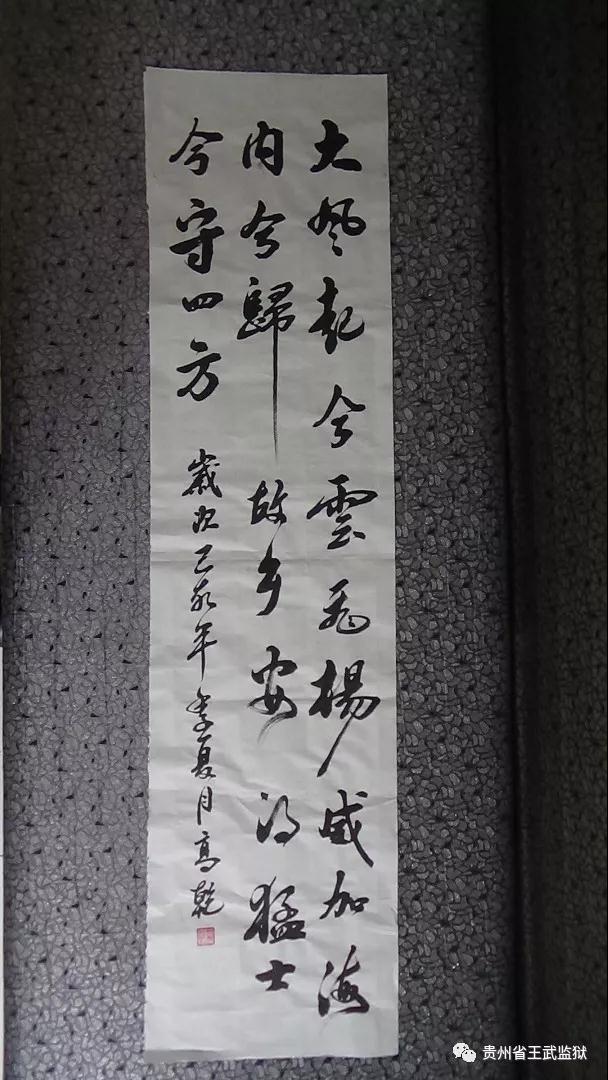 大风起兮雲飞楊威加海
内兮歸故乡安得猛士
兮守四方
歲次己亥年季夏月高乾
贵州省王武监狱